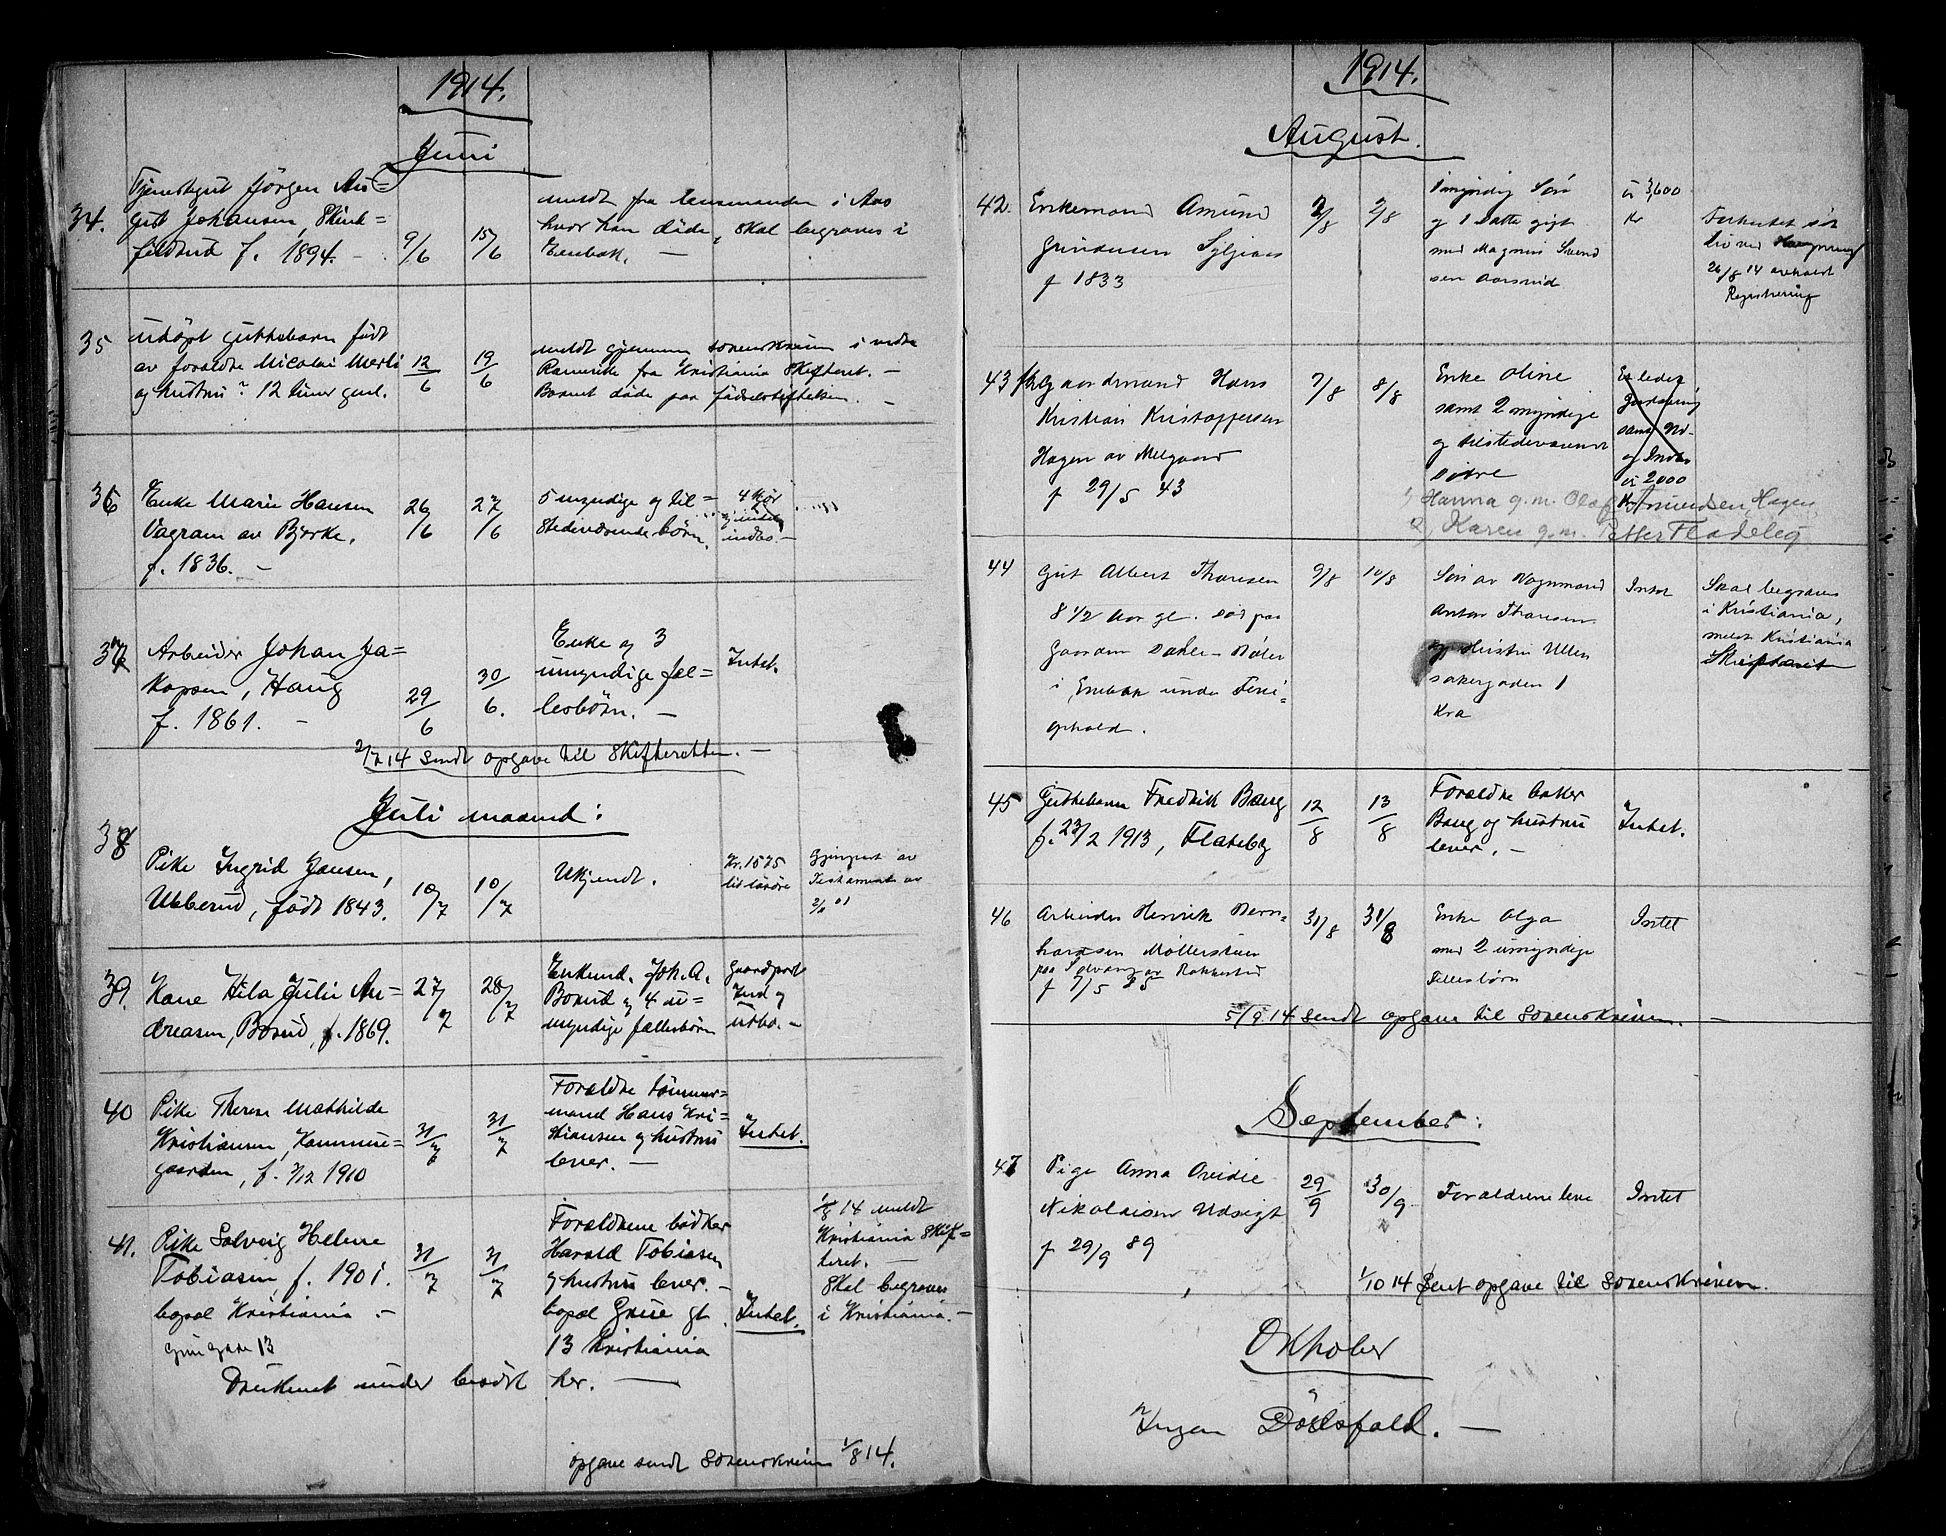 1914.
Juni
34. Tjenestegut Jörgen Au=
gust Johansen,
f. 1894. –
9/6
15/6
meldt fra lensmanden i Aas
hvor han døde, skal begraves i
Enebak. –
35 udöpt guttebarn födt
av foraldre Nicolai
og hustru? 12 timer gml.
12/6
19/6
meldt gjennem sorenskriveren i nedre
Romerike fra Kristiania Skifteret. –
Barnet døde paa fødselsstiftelsen. –
36 Enke Marie Hansen
Vagram av Bjerke.
f. 1836. –
26/6
27/6
5 myndige og til=
stedeværende börn.
4 kör
indbo. –
37 Arbeider Johan Ja=
kopsen, Haug
f. 1861. –
29/6
30/6.
Enke og 3
umyndige fæl=
lesbörn. –
Intet.
2/7 14 sendt opgave til Skifteretten. –
Juli maaned:
38 Pike Ingrid Jansen,
Ubberud, födt 1843.
10/7
10/7
Ukjendt.
Kr. 1575
Gjenpart av
Testament av
39. Kone Hila Julie An=
dreasen, Borud, f. 1869.
27/7
28/7
Enkemd. Joh. A.
Borud og 4 u=
myndige fællesbörn
Gaardpart
Ind og
utbo. –
40 Pike Therese Mathilde
Kristiansen, Kommune=
gaarden, f. 1910
31/7
31/7
Foraldre tömmer=
mand Hans Kri=
stiansen og hustru
lever. –
Intet.
41. Pike Solveig Helene
Tobiasen f. 1901.
bopæl Kristiania –
13
31/7
31/7
Foraldrene bödker
Harald Tobiasen
og hustru lever. –
bopæl Grue gt.
13 Kristiania
Intet.
1/8 14 meldt
Kristiania Skif=
teret. –
Skal begraves
i Kristiania. –
Druknet under besök her. –
opgave sendt Sorenskriveren 1/8 14.
1914.
August.
42. Enkemand Amund
Gundersen
f 1833
2/8
2/8
1 myndig Sön
og 1 Datter gift
med Magnus Svend
sen Aarsrud
3,600
Kr
26/8 14 avholdt
Registrering
43 Gaardmand Hans
Kristian Kristoffersen
Hagen av Melgaard
f 29/5 43
7/8
8/8
Enke Oline
samt 2 myndige
og tilstedeværende
dötre
samt
og Indbo
2000
Kr
1) Hanna g.m. Olaf Amundsen Hagen
2) Karen g.m. Petter Fladeby
44 Gut Albert Thoresen
8 1/2 Aar gl. död paa
Gaarden
i Enebak under
ophold.
9/8
10/8
Sön av Vognmand
Anton Thoresen
og Hustru Ullen
sakergaden 1
Kra
Intet
Skal begraves
i Kristiania,
meldt Kristiania
Skifteret
45 Guttebarn Fredrik Bang
f. 23/2 1913, Flateby
12/8
13/8
Foraldre baker
Bang og hustru
lever. –
Intet.
46 Arbeider Henrik Bern=
hardsen Möllerstuen
f 7/5 85
31/8
31/8
Enke Olga
med 2 umyndige
Fellesbörn
Intet
5/9 14 sendt opgave til Sorenskriveren. –
September:
47 Pige Anna Ovidie
Nikolaisen Udsigt
f 29/9 89
29/9
30/9
Foraldrene leve
Intet
1/10 14 sent opgave til Sorenskriveren.
Oktober
Ingen Dödsfald. –